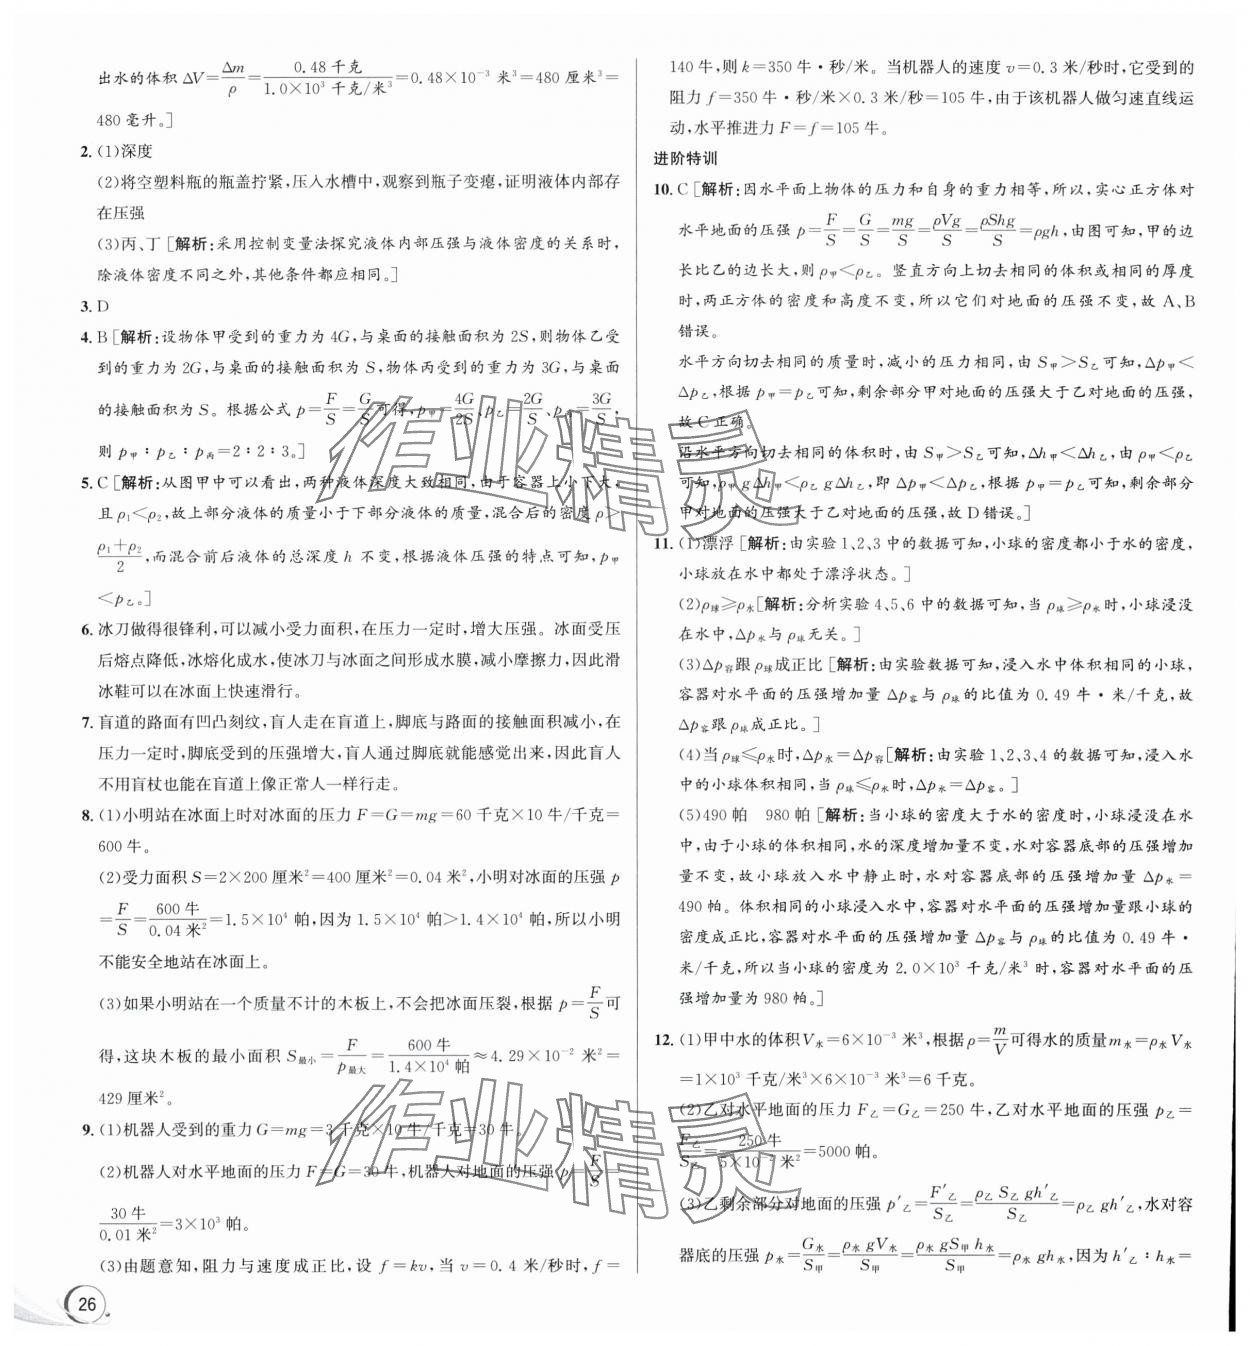 出水的体积 ΔV=Δm/ρ=0.48 千克/1.0×10³ 千克/米³=0.48×10⁻³ 米³=480 厘米³=
480 毫升。]
2. (1)深度
(2)将空塑料瓶的瓶盖拧紧,压入水槽中,观察到瓶子变瘪,证明液体内部存
在压强
(3)丙、丁[解析:采用控制变量法探究液体内部压强与液体密度的关系时,
除液体密度不同之外,其他条件都应相同。]
3. D
4. B[解析:设物体甲受到的重力为 4G,与桌面的接触面积为 2S,则物体乙受
到的重力为 2G,与桌面的接触面积为 S,物体丙受到的重力为 3G,与桌面
的接触面积为 S。根据公式 p=F/S=G/S可得,p甲=4G/2S、p乙=2G/S、p丙=3G/S,
则 p甲∶p乙∶p丙=2∶2∶3。]
5. C[解析:从图甲中可以看出,两种液体深度大致相同,由于容器上小下大,
且 ρ₁<ρ₂,故上部分液体的质量小于下部分液体的质量,混合后的密度 ρ>
(ρ₁+ρ₂)/2,而混合前后液体的总深度 h 不变,根据液体压强的特点可知,p甲
<p乙。]
6. 冰刀做得很锋利,可以减小受力面积,在压力一定时,增大压强。冰面受压
后熔点降低,冰熔化成水,使冰刀与冰面之间形成水膜,减小摩擦力,因此滑
冰鞋可以在冰面上快速滑行。
7. 盲道的路面有凹凸刻纹,盲人走在盲道上,脚底与路面的接触面积减小,在
压力一定时,脚底受到的压强增大,盲人通过脚底就能感觉出来,因此盲人
不用盲杖也能在盲道上像正常人一样行走。
8. (1)小明站在冰面上时对冰面的压力 F=G=mg=60 千克×10 牛/千克=
600 牛。
(2)受力面积 S=2×200 厘米²=400 厘米²=0.04 米²,小明对冰面的压强 p
=F/S=600 牛/0.04 米²=1.5×10⁴ 帕,因为 1.5×10⁴ 帕>1.4×10⁴ 帕,所以小明
不能安全地站在冰面上。
(3)如果小明站在一个质量不计的木板上,不会把冰面压裂,根据 p=F/S可
得,这块木板的最小面积 S最小=F/p最大=600 牛/1.4×10⁴ 帕≈4.29×10⁻² 米²=
429 厘米²。
9. (1)机器人受到的重力 G=mg=3 千克×10 牛/千克=30 牛。
(2)机器人对水平地面的压力 F=G=30 牛,机器人对地面的压强 p=F/S=
30 牛/0.01 米²=3×10³ 帕。
(3)由题意知,阻力与速度成正比,设 f=kv,当 v=0.4 米/秒时,f=
26
140 牛,则 k=350 牛·秒/米。当机器人的速度 v=0.3 米/秒时,它受到的
阻力 f=350 牛·秒/米×0.3 米/秒=105 牛,由于该机器人做匀速直线运
动,水平推进力 F=f=105 牛。
进阶特训
10. C[解析:因水平面上物体的压力和自身的重力相等,所以,实心正方体对
水平地面的压强 p=F/S=G/S=mg/S=ρVg/S=ρShg/S=ρgh,由图可知,甲的边
长比乙的边长大,则 ρ甲<ρ乙。竖直方向上切去相同的体积或相同的厚度
时,两正方体的密度和高度不变,所以它们对地面的压强不变,故 A、B
错误。
水平方向切去相同的质量时,减小的压力相同,由 S甲>S乙可知,Δp甲<
Δp乙,根据 p甲=p乙可知,剩余部分甲对地面的压强大于乙对地面的压强,
故 C 正确。
沿水平方向切去相同的体积时,由 S甲>S乙可知,Δh甲<Δh乙,由 ρ甲<ρ乙
可知,ρ甲 gΔh甲<ρ乙 gΔh乙,即 Δp甲<Δp乙,根据 p甲=p乙可知,剩余部分
甲对地面的压强大于乙对地面的压强,故 D 错误。]
11. (1)漂浮[解析:由实验 1、2、3 中的数据可知,小球的密度都小于水的密度,
小球放在水中都处于漂浮状态。]
(2)ρ球≥ρ水[解析:分析实验 4、5、6 中的数据可知,当 ρ球≥ρ水时,小球浸没
在水中,Δp水与 ρ球无关。]
(3)Δp容跟 ρ球成正比[解析:由实验数据可知,浸入水中体积相同的小球,
容器对水平面的压强增加量 Δp容与 ρ球的比值为 0.49 牛·米/千克,故
Δp容跟 ρ球成正比。]
(4)当 ρ球≤ρ水时,Δp水=Δp容[解析:由实验 1、2、3、4 的数据可知,浸入水
中的小球体积相同,当 ρ球≤ρ水时,Δp水=Δp容。]
(5)490 帕 980 帕[解析:当小球的密度大于水的密度时,小球浸没在水
中,由于小球的体积相同,水的深度增加量不变,水对容器底部的压强增加
量不变,故小球放入水中静止时,水对容器底部的压强增加量 Δp水=
490 帕。体积相同的小球浸入水中,容器对水平面的压强增加量跟小球的
密度成正比,容器对水平面的压强增加量 Δp容与 ρ球的比值为 0.49 牛·
米/千克,所以当小球的密度为 2.0×10³ 千克/米³ 时,容器对水平面的压
强增加量为 980 帕。]
12. (1)甲中水的体积 V水=6×10⁻³ 米³,根据 ρ=m/V可得水的质量 m水=ρ水V水
=1×10³ 千克/米³×6×10⁻³ 米³=6 千克。
(2)乙对水平地面的压力 F乙=G乙=250 牛,乙对水平地面的压强 p乙=
F乙/S乙=250 牛/5×10⁻² 米²=5000 帕。
(3)乙剩余部分对地面的压强 p′乙=F′乙/S乙=ρ乙 S乙 gh′乙/S乙=ρ乙 gh′乙,水对容
器底的压强 p水=G水/S甲=ρ水 gV水/S甲=ρ水 gS甲 h水/S甲=ρ水 gh水,因为 h′乙∶h水=
作业精灵
作业精灵